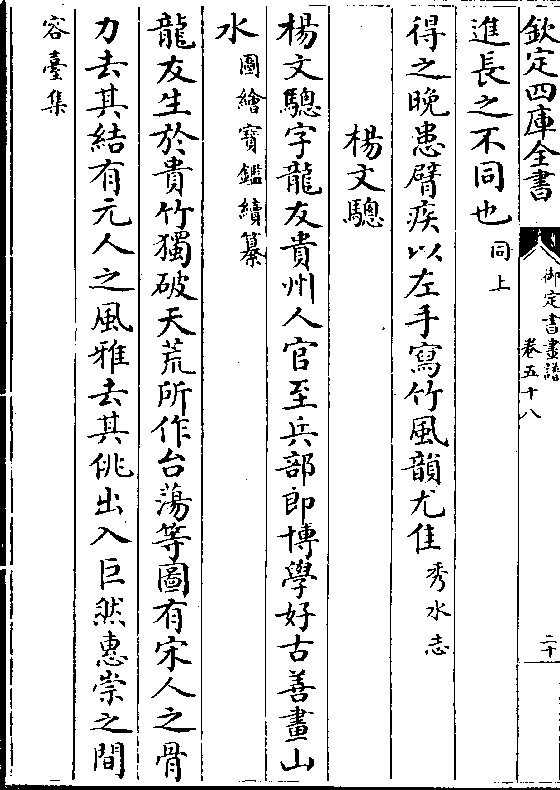 欽定四庫全書
御定書畫譜
卷五十八
二十
進長之不同也同上
得之晚患臂疾以左手寫竹風韻尤佳秀水志
楊文驄
楊文驄字龍友貴州人官至兵部郎博學好古善畫山
水圖繪寶鑑續纂
龍友生於貴竹獨破天荒所作台蕩等圖有宋人之骨
力去其結有元人之風雅去其佻出入巨然惠崇之間
容臺集